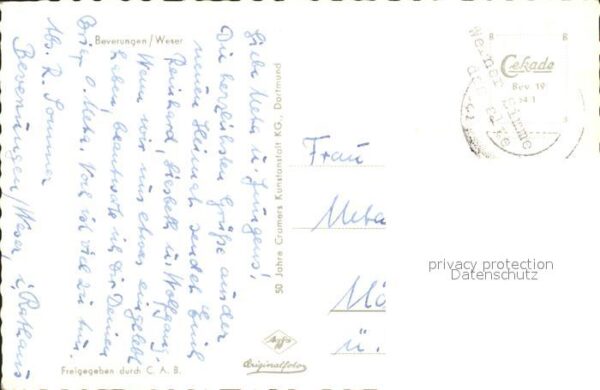 Beverungen/Weser
Liebe Meta u. Jungens!
Die herzlichsten Grüße aus der
neuen Heimat senden Euch
Reinhard, Liesbeth u. Wolfgang.
Wenn wir uns etwas eingelebt
haben, beantworte ich Dir Deinen
Brief, l. Meta. Vorl. ist viel zu tun.
Abs. R. Sommer
Beverungen/Weser, i. Rathaus
Freigegeben durch C. A. B.
50 Jahre Cramers Kunstanstalt KG., Dortmund
Agfa
Originalfoto
Cekade
Bev. 19
Frau
Meta
Mö
ü.
privacy protection
Datenschutz